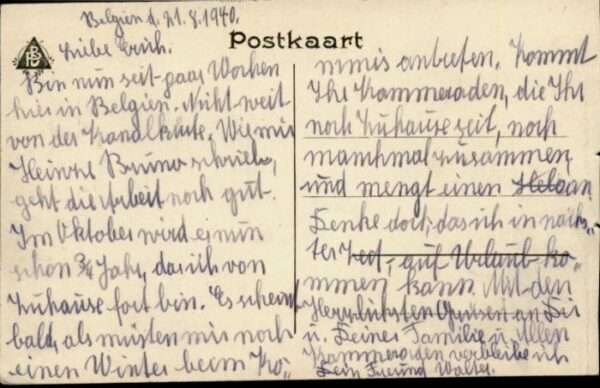 Belgien d. 21.8.1940.
Postkaart
PB
Liebe Erich.
Bin nun seit paar Wochen
hier in Belgien. Nicht weit
von der Kanalküste. Wie mir
Heinrel Bruno schrieb,
geht die Arbeit noch gut.
Im Oktober wird es nun
schon 3/4 Jahr, das ich von
Zuhause fort bin. Es scheint
bald, als müsten wir noch
einen Winter beim Ko=
mmis antreten. Kommt
Ihr Kammeraden, die Ihr
noch Zuhause seit, noch
manchmal zusammen,
und mengt einen an
Denke doch, das ich in näch=
ter Zeit, auf Urlaub ko=
mmen kann. Mit den
Herzlichsten Grüsen an Dir
u. Deiner Familie u. Allen
Kammeraden verbleibe ich
Dein Freund Walter.